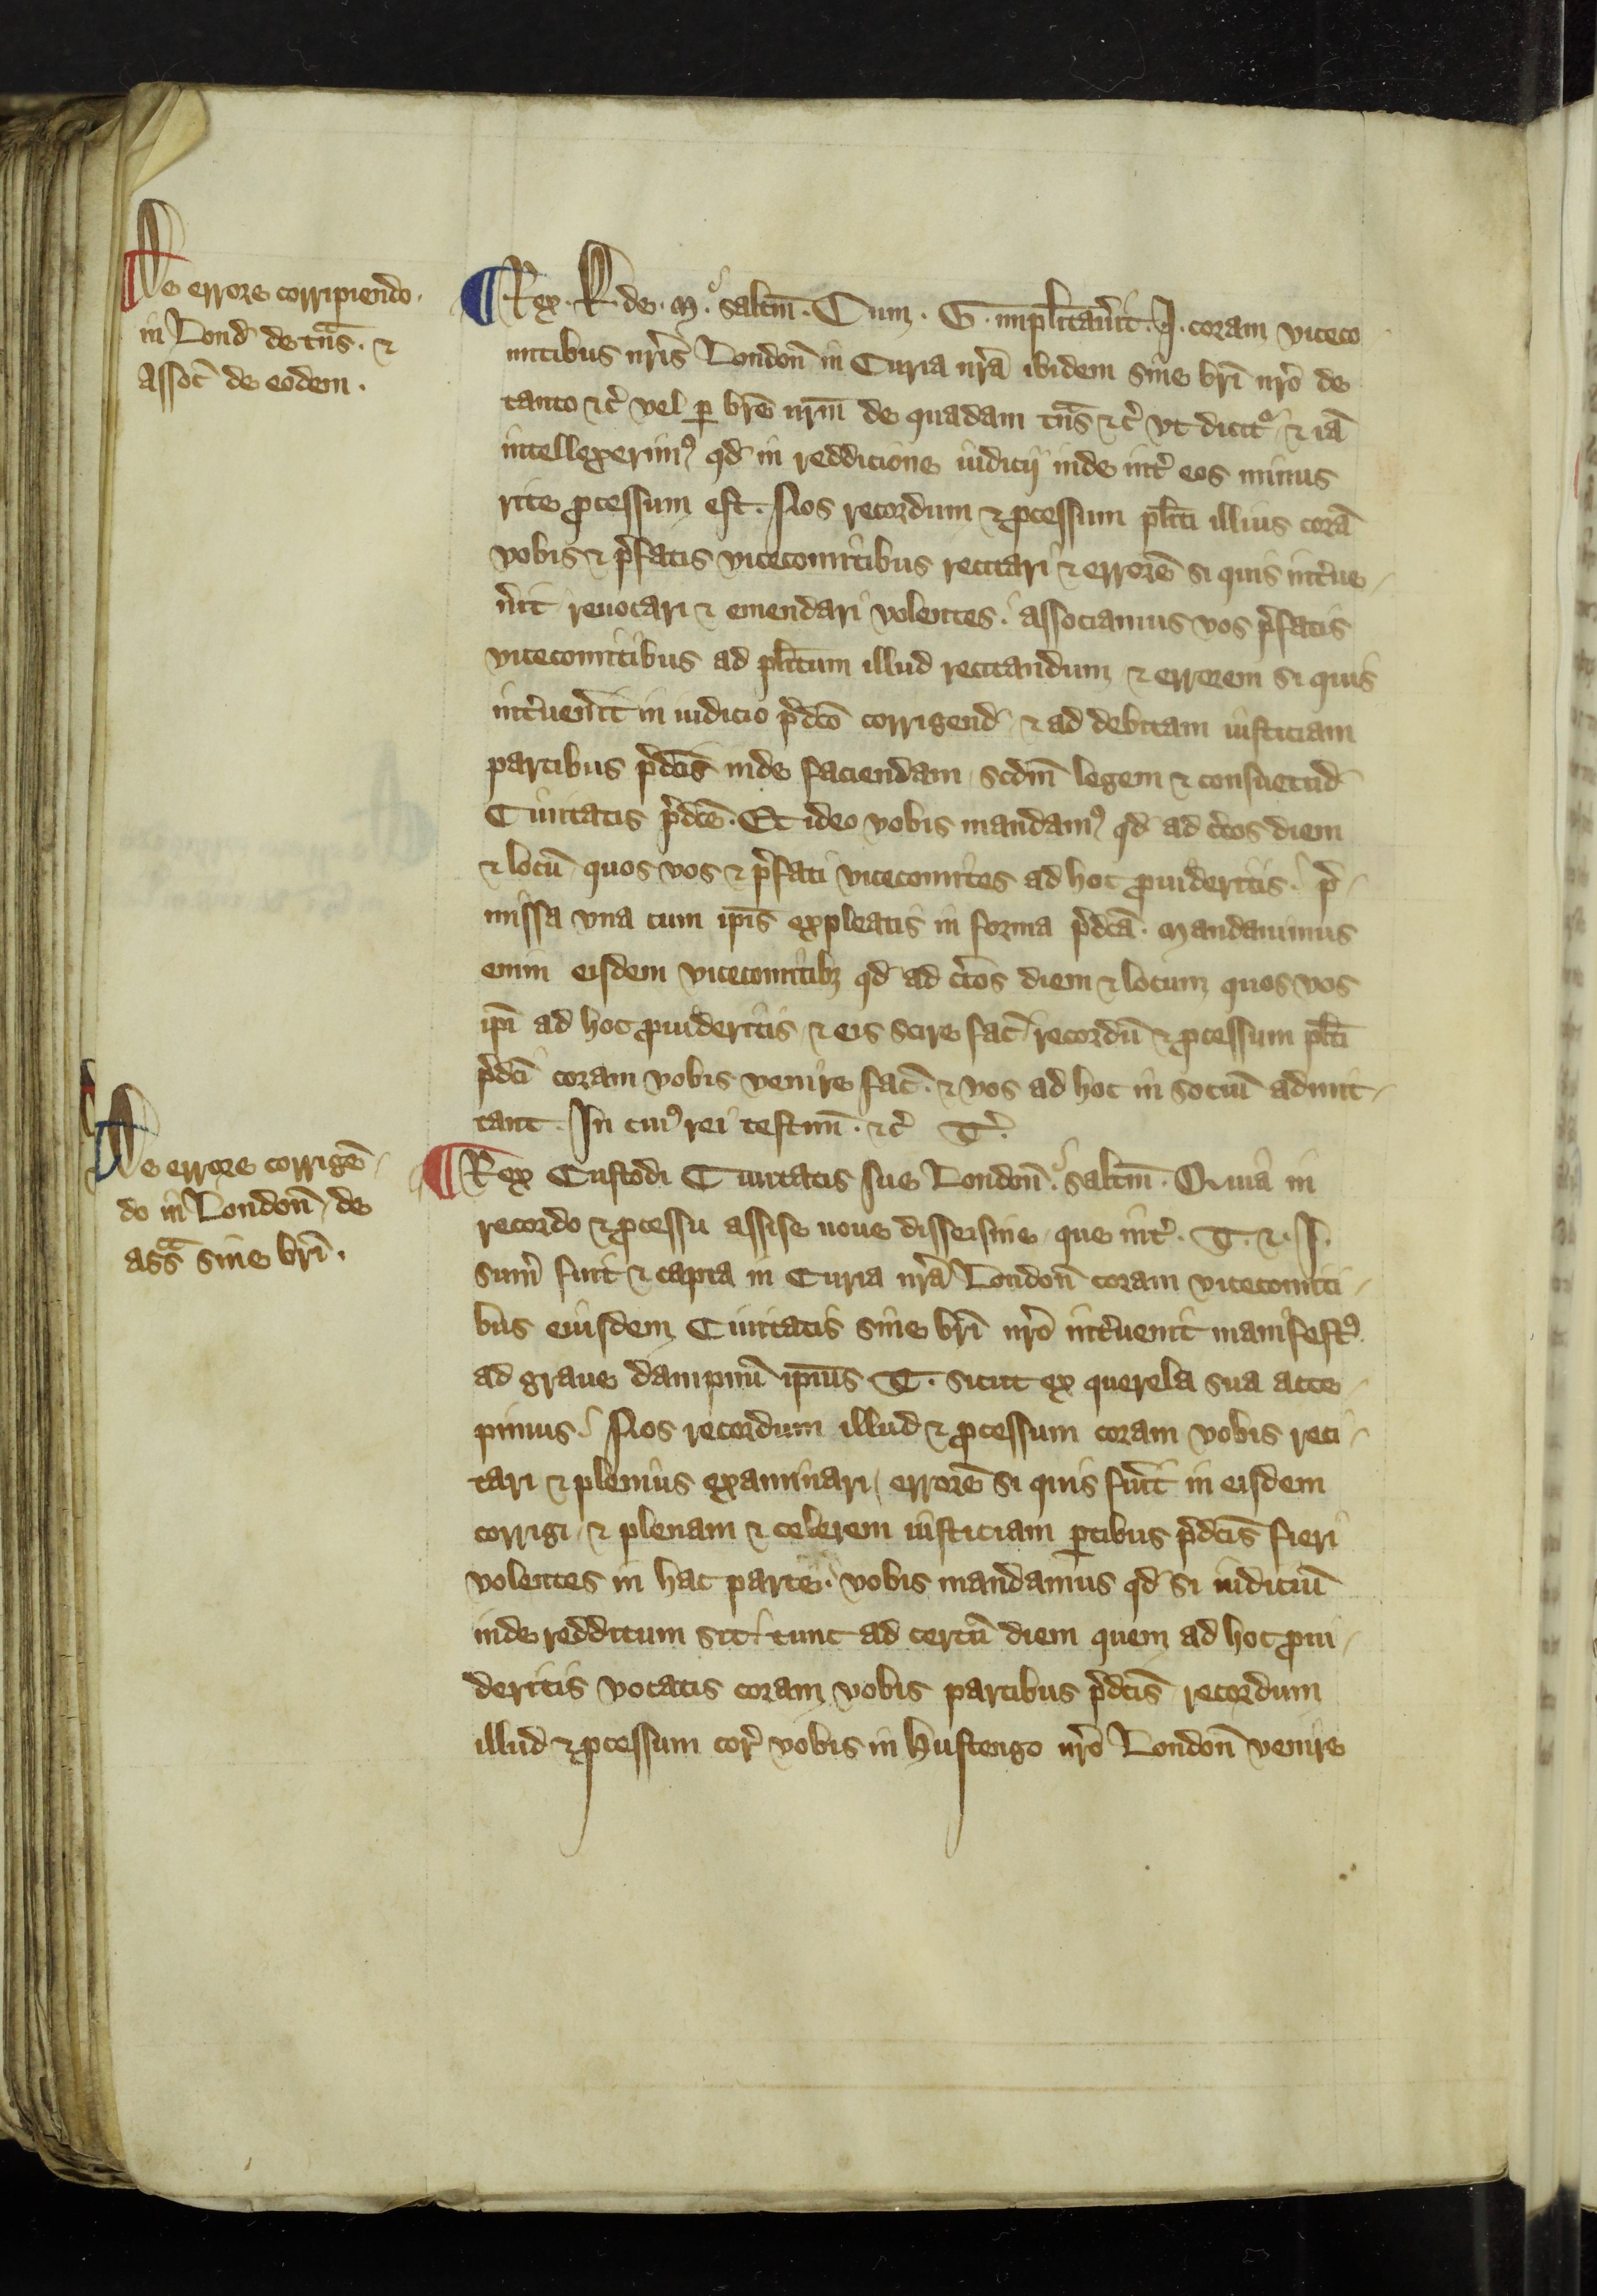 De errore corripiendo.
in Lond̄ de tn̄s. ⁊
assoc̄ de eodem.
¶ Rex. R. de. M. salt̄m. Cum. G. implitau̾it. I. coram viceco
mitibus nr̄is London̄ in Curia nr̄a ibidem sine br̄i nr̄o de
tanto ⁊c̄ vel ꝑ br̄e nr̄m de quadam tn̄s ⁊c̄ vt dicit᷑ ⁊ iā
intellexerimꝰ qd̄ in reddicione iudicij inde int̾ eos minus
rite ꝓcessum est. Nos recordum ⁊ ꝓcessum pl̄iti illius corā
vobis ⁊ p̄fatis vicecomitibus recitari ⁊ errorē si quis int̾ue
n̾it reuocari ⁊ emendari volentes. associamus vos p̄fatis
vicecomitibus ad pl̄itum illud recitandum ⁊ errorem si quis
int̾uen̾it in iudicio p̄dc̄o corrigend̄ ⁊ ad debitam iusticiam
partibus p̄dc̄is inde faciendam scdm̄ legem ⁊ consuetud̄
Ciuitatis p̄dc̄e. Et ideo vobis mandamꝰ qd̄ ad c̾tos diem
⁊ locū quos vos ⁊ p̄fati vicecomites ad hoc ꝓuideritis. p̄
missa vna cum ip̄is expleatis in forma p̄dc̄a. Mandauimus
enim eisdem vicecomitibꝫ qd̄ ad c̾tos diem ⁊ locum quos vos
ip̄i ad hoc ꝓuideritis ⁊ eis scire fac̄ recordū ⁊ ꝓcessum pl̄iti
p̄dc̄i coram vobis venire fac̄. ⁊ vos ad hoc in sociū admit
tant. In cuiꝰ rei testim̄. ⁊c̄ T̾.
De errore corrigē
do in London̄ de
ass̄a sine br̄i.
¶ Rex Custodi Ciuitatis sue London̄. salt̄m. Quia in
recordo ⁊ ꝓcessu assise noue disseisine que int̾. T. ⁊. I.
sum̄ fuit ⁊ capta in Curia nr̄a London̄ coram vicecomiti
bus eiusdem Ciuitatis sine br̄i nr̄o int̾uenit manifestꝰ
ad graue dampnū ip̄ius T. sicut ex querela sua acce
pimus. Nos recordum illud ⁊ ꝓcessum coram vobis reci
tari ⁊ plenius examinari errorē si quis fu̾it in eisdem
corrigi ⁊ plenam ⁊ celerem iusticiam ꝑtibus p̄dc̄is fieri
volentes in hac parte. vobis mandamus qd̄ si iudiciū
inde redditum sit tunc ad certū diem quem ad hoc ꝓui
deritis vocatis coram vobis partibus p̄dc̄is recordum
illud ⁊ ꝓcessum cor̄ vobis in Hustengo nr̄o London̄ venire